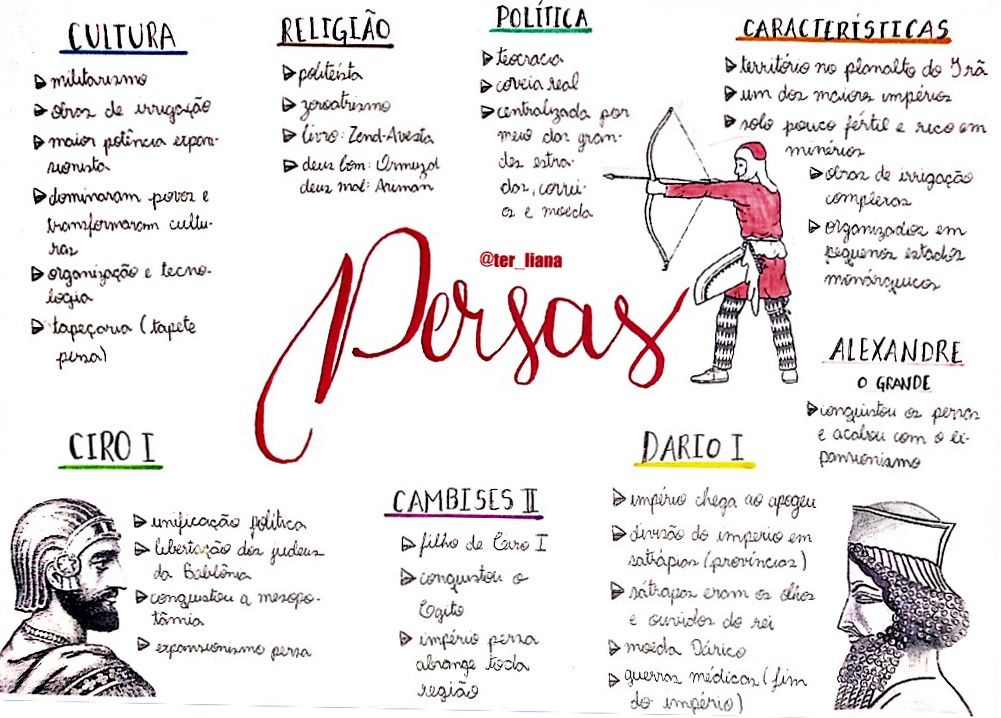 CULTURA
militarismo
obras de irrigação
maior potência expan-
sionista
dominaram povos e
transformaram cultu-
ras
organização e tecno-
logia
tapeçaria (tapete
persa)
RELIGIÃO
politeísta
zoroatrismo
livro: Zend-Avesta
deus bom: Ormuzd
deus mal: Ariman
POLÍTICA
teocracia
coveia real
centralizada por
meio das gran-
des estra-
das, correi-
os e moeda
CARACTERÍSTICAS
território no planalto do Irã
um dos maiores impérios
solo pouco fértil e rico em
minérios
obras de irrigação
complexas
organizados em
pequenos estados
monárquicos
@ter_liana
Persas
ALEXANDRE
O GRANDE
conquistou os persas
e acabou com o ex-
pansionismo
CIRO I
unificação política
libertação dos judeus
da Babilônia
conquistou a mesopo-
tâmia
expansionismo persa
CAMBISES II
filho de Ciro I
conquistou o
Egito
império persa
abrange toda
região
DARIO I
império chega ao apogeu
divisão do imperio em
satrápias (províncias)
sátrapas eram os olhos
e ouvidos do rei
moeda Dárico
guerras médicas (fim
do império)